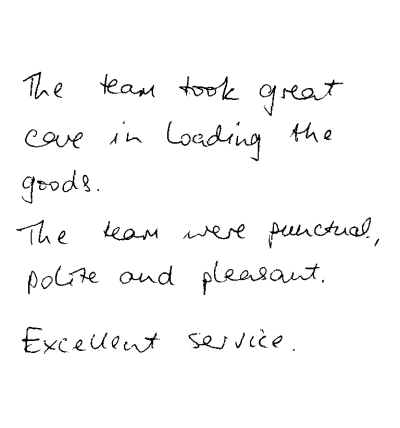 The team took great
care in loading the
goods.
The team were punctual,
polite and pleasant.
Excellent service.